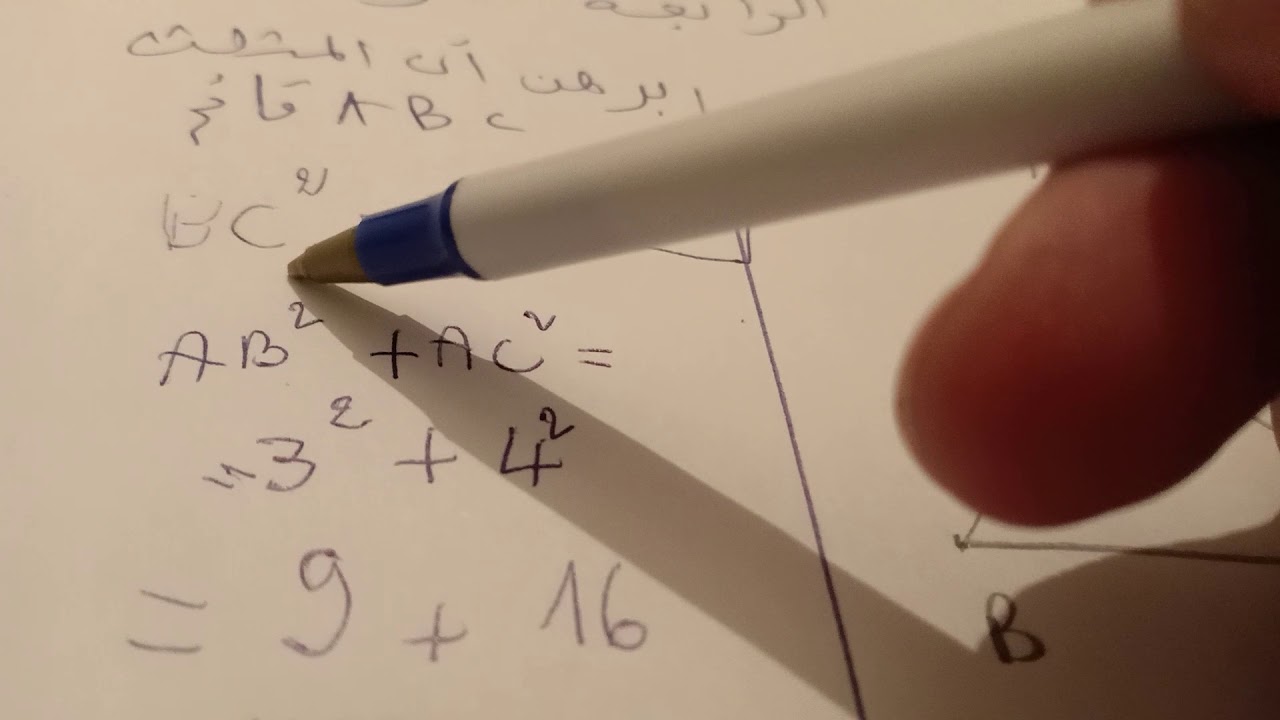 الرابعة
ابرهن أن المثلث
ABC قائم
BC²
AB² + AC² =
= 3² + 4²
= 9 + 16
B